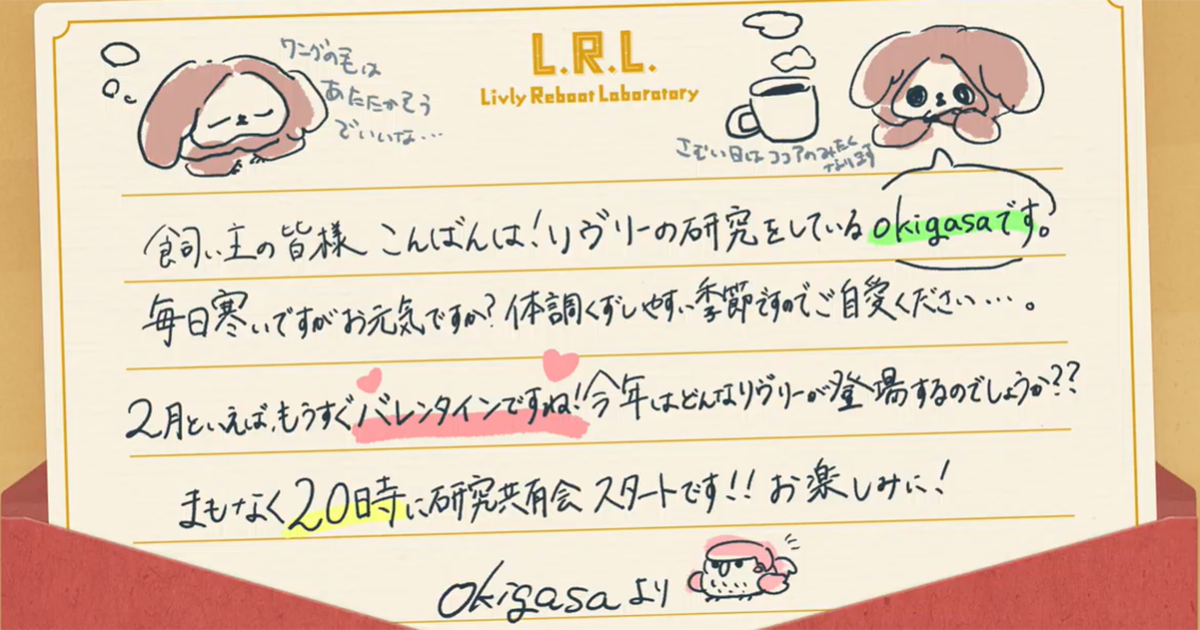 ワングの毛は
あたたかそう
でいいな…
L.R.L.
Livly Reboot Laboratory
さむい日はココアのみたく
なります
飼い主の皆様 こんばんは！リヴリーの研究をしているokigasaです。
毎日寒いですがお元気ですか？体調くずしやすい季節ですのでご自愛ください…。
2月といえば、もうすぐバレンタインですね！今年はどんなリヴリーが登場するのでしょうか？？
まもなく20時に研究共有会スタートです！！お楽しみに！
okigasaより